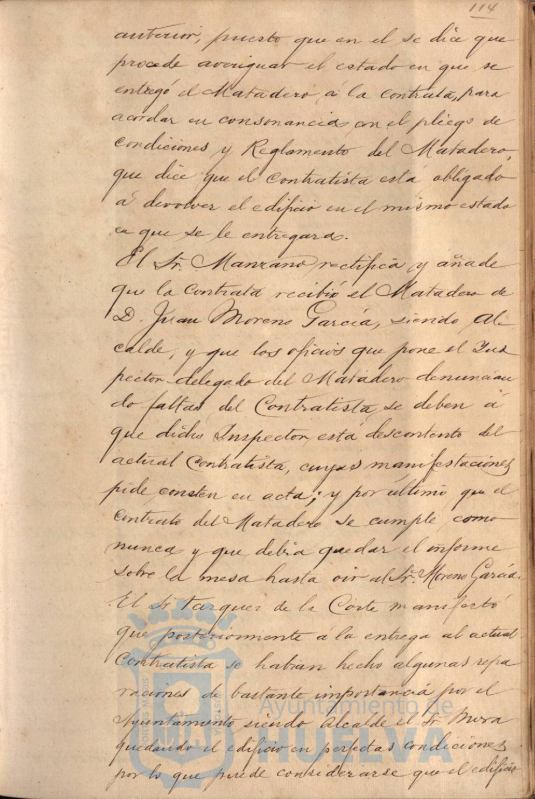 114
anterior, puesto que en el se dice que
procede averiguar el estado en que se
entregó el Matadero á la contrata, para
acordar en consonancia con el pliego de
condiciones y Reglamento del Matadero,
que dice que el contratista está obligado
á devolver el edificio en el mismo estado
en que se le entregara.
El Sr. Manzano rectifica y añade
que la contrata recibió el Matadero de
D. Juan Moreno García, siendo Al
calde, y que los oficios que pone el Ins
pector delegado del Matadero denuncian
do faltas del Contratista, se deben á
que dicho Inspector está descontento del
actual Contratista, cuyas manifestaciones
pide consten en acta; y por último que el
contrato del Matadero se cumple como
nunca y que debia quedar el informe
sobre la mesa hasta oir al Sr. Moreno García.
El Sr. Vazquez de la Corte manifestó
que posteriormente á la entrega al actual
Contratista se habian hecho algunas repa
raciones de bastante importancia por el
Ayuntamiento siendo Alcalde el Sr. Mora
quedando el edificio en perfectas condiciones
por lo que puede considerarse que el edificio
Ayuntamiento de
HUELVA